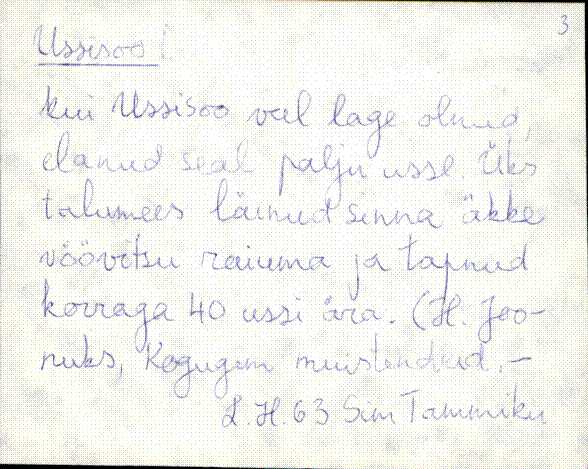 3
Ussisoo
Kui Ussisoo veel lage olnud,
elanud seal palju usse. Üks
talumees läinud sinna äkke
vöövitsu raiuma ja tapnud
korraga 40 ussi ära. (H. Joo-
nuks, Kogugem muistendeid. –
L.H. 63 Sim Tammiku